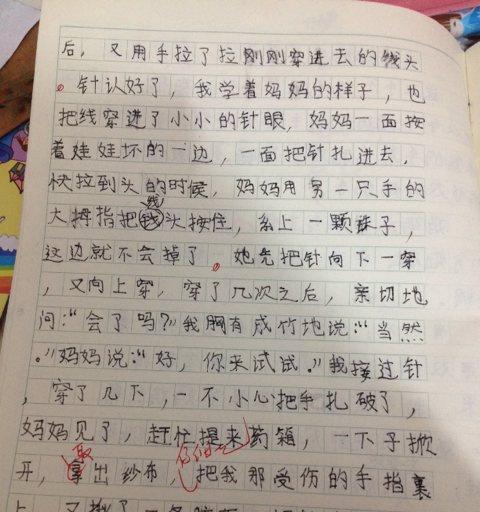 后，又用手拉了拉刚刚穿进去的线头
。针认好了，我学着妈妈的样子，也
把线穿进了小小的针眼，妈妈一面按
着娃娃坏的一边，一面把针扎进去，
快拉到头的时候，妈妈用另一只手的
大拇指把线头按住，系上一颗珠子，
这边就不会掉了。她先把针向下一穿
，又向上穿，穿了几次之后，亲切地
问：“会了吗？”我胸有成竹地说：“当然
。”妈妈说：“好，你来试试。”我接过针
，穿了几下，一不小心把手扎破了，
妈妈见了，赶忙提来药箱，一下子掀
开，取出纱布，把我那受伤的手指裹
上，又